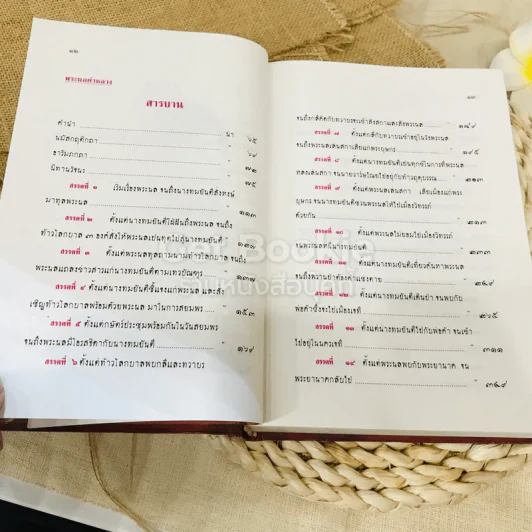 ๑๒
พระนลคำหลวง
สารบาน
คำนำ น่า ๖๕
นมัสกฤติกถา " ๖๗
อารัมภกถา " ๗๒
นิทานวัจนะ " ๗๕
สรรคที่ ๑ เริ่มเรื่องพระนล จนถึงนางทมยันตีสั่งหงษ์
มาทูลพระนล " ๑๑๓
สรรคที่ ๒ ตั้งแต่นางทมยันตีใฝ่ฝันถึงพระนล จนถึง
ท้าวโลกบาล ๓ องค์สั่งให้พระนลเปนทูตไปสู่นางทมยันตี " ๑๒๓
สรรคที่ ๓ ตั้งแต่พระนลทูลถามนามท้าวโลกบาล จนถึง
พระนลแถลงข่าวสารแก่นางทมยันตีตามเทวบัณฑูร " ๑๓๗
สรรคที่ ๔ ตั้งแต่นางทมยันตีชี้แจงแก่พระนล และสั่ง
เชิญท้าวโลกบาลพร้อมด้วยพระนล มาในการสยมพร " ๑๕๓
สรรคที่ ๕ ตั้งแต่กษัตร์ประชุมพร้อมกันในวันสยมพร
จนถึงพระนลมีโอรสธิดากับนางทมยันตี " ๑๖๙
สรรคที่ ๖ ตั้งแต่ท้าวโลกบาลพบกลีและทวาบร
๑๓
จนถึงกลีคิดกับทวาบรจะเข้าสิงสกาและสิงพระนล " ๑๘๙
สรรคที่ ๗ ตั้งแต่กลีกับทวาบรเข้าอยู่ในวังพระนล
จนถึงพระนลเล่นสกาเสียแก่พระบุษกร " ๑๙๕
สรรคที่ ๘ ตั้งแต่นางทมยันตีเปนทุกข์ในการที่พระนล
หลงเล่นสกา จนนายวาร์ษไณยไปอยู่กับท้าวฤตุบรรณ " ๒๑๓
สรรคที่ ๙ ตั้งแต่พระนลเล่นสกา เสียเมืองแก่พระ
บุษกร จนนางทมยันตีชวนพระนลให้ไปเมืองวิทรรภ์
ด้วยกัน " ๒๓๓
สรรคที่ ๑๐ ตั้งแต่พระนลไม่ยอมไปเมืองวิทรรภ์
จนพระนลหนีนางทมยันตี
สรรคที่ ๑๑ ตั้งแต่นางทมยันตีเที่ยวค้นหาพระนล
จนถึงพรานป่าต้องคำแช่งตาย
สรรคที่ ๑๒ ตั้งแต่นางทมยันตีเดินป่า จนพบกับ
พ่อค้าซึ่งจะไปเมืองเจที
สรรคที่ ๑๓ ตั้งแต่นางทมยันตีไปกับพ่อค้า จนเข้า
ไปอยู่ในนครเจที " ๓๑๑
สรรคที่ ๑๔ ตั้งแต่พระนลพบกับพระยานาค จน
พระยานาคกลับไป " ๓๔๙